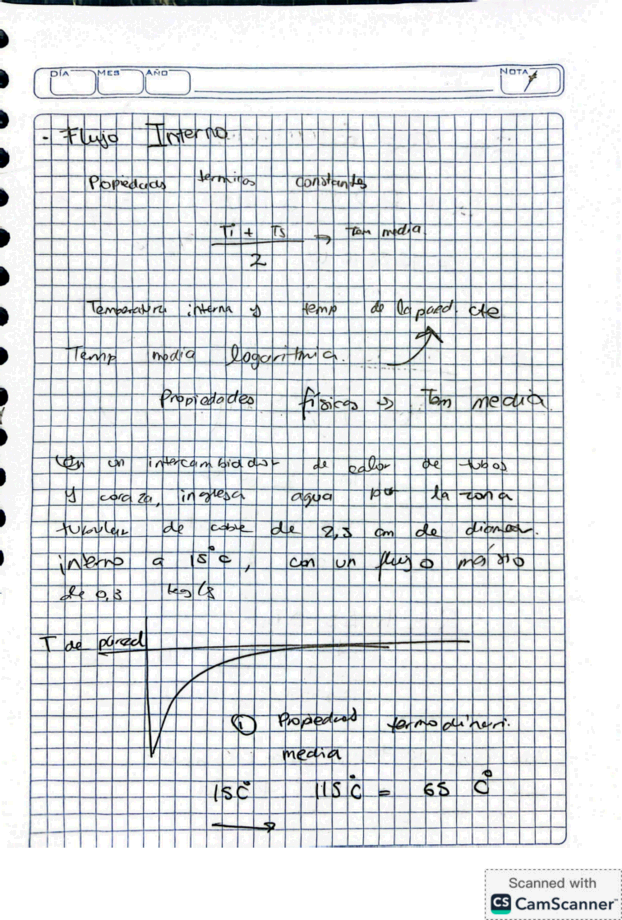 DÍA MES AÑO NOTA
- Flujo Interno.
Popedads termicas constantes
Ti + Ts → Tem media.
2
Temperatura interna y temp de la pared. cte
Temp media logaritmica.
Propiedades físicas → Tem media
En un intercambiador de calor de tubos
y coraza, ingresa agua por la zona
tubular de cobre de 2,5 cm de diametr.
interno a 15°C, con un flujo másico
de 0,3 kg/s
T de pared
① Propiedad termodinam.
media
15C° 115°C = 65 C°
Scanned with
CS CamScanner